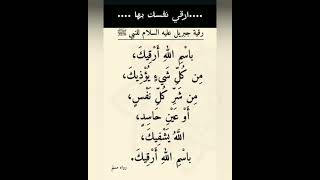 ....ارقي نفسك بها ....
رقية جبريل عليه السلام للنبي ﷺ
بِاسْمِ اللهِ أَرْقِيكَ،
مِن كُلِّ شَيءٍ يُؤْذِيكَ،
مِن شَرِّ كُلِّ نَفْسٍ،
أَوْ عَيْنٍ حَاسِدٍ،
اللهُ يَشْفِيكَ،
بِاسْمِ اللهِ أَرْقِيكَ.
رواه مسلم